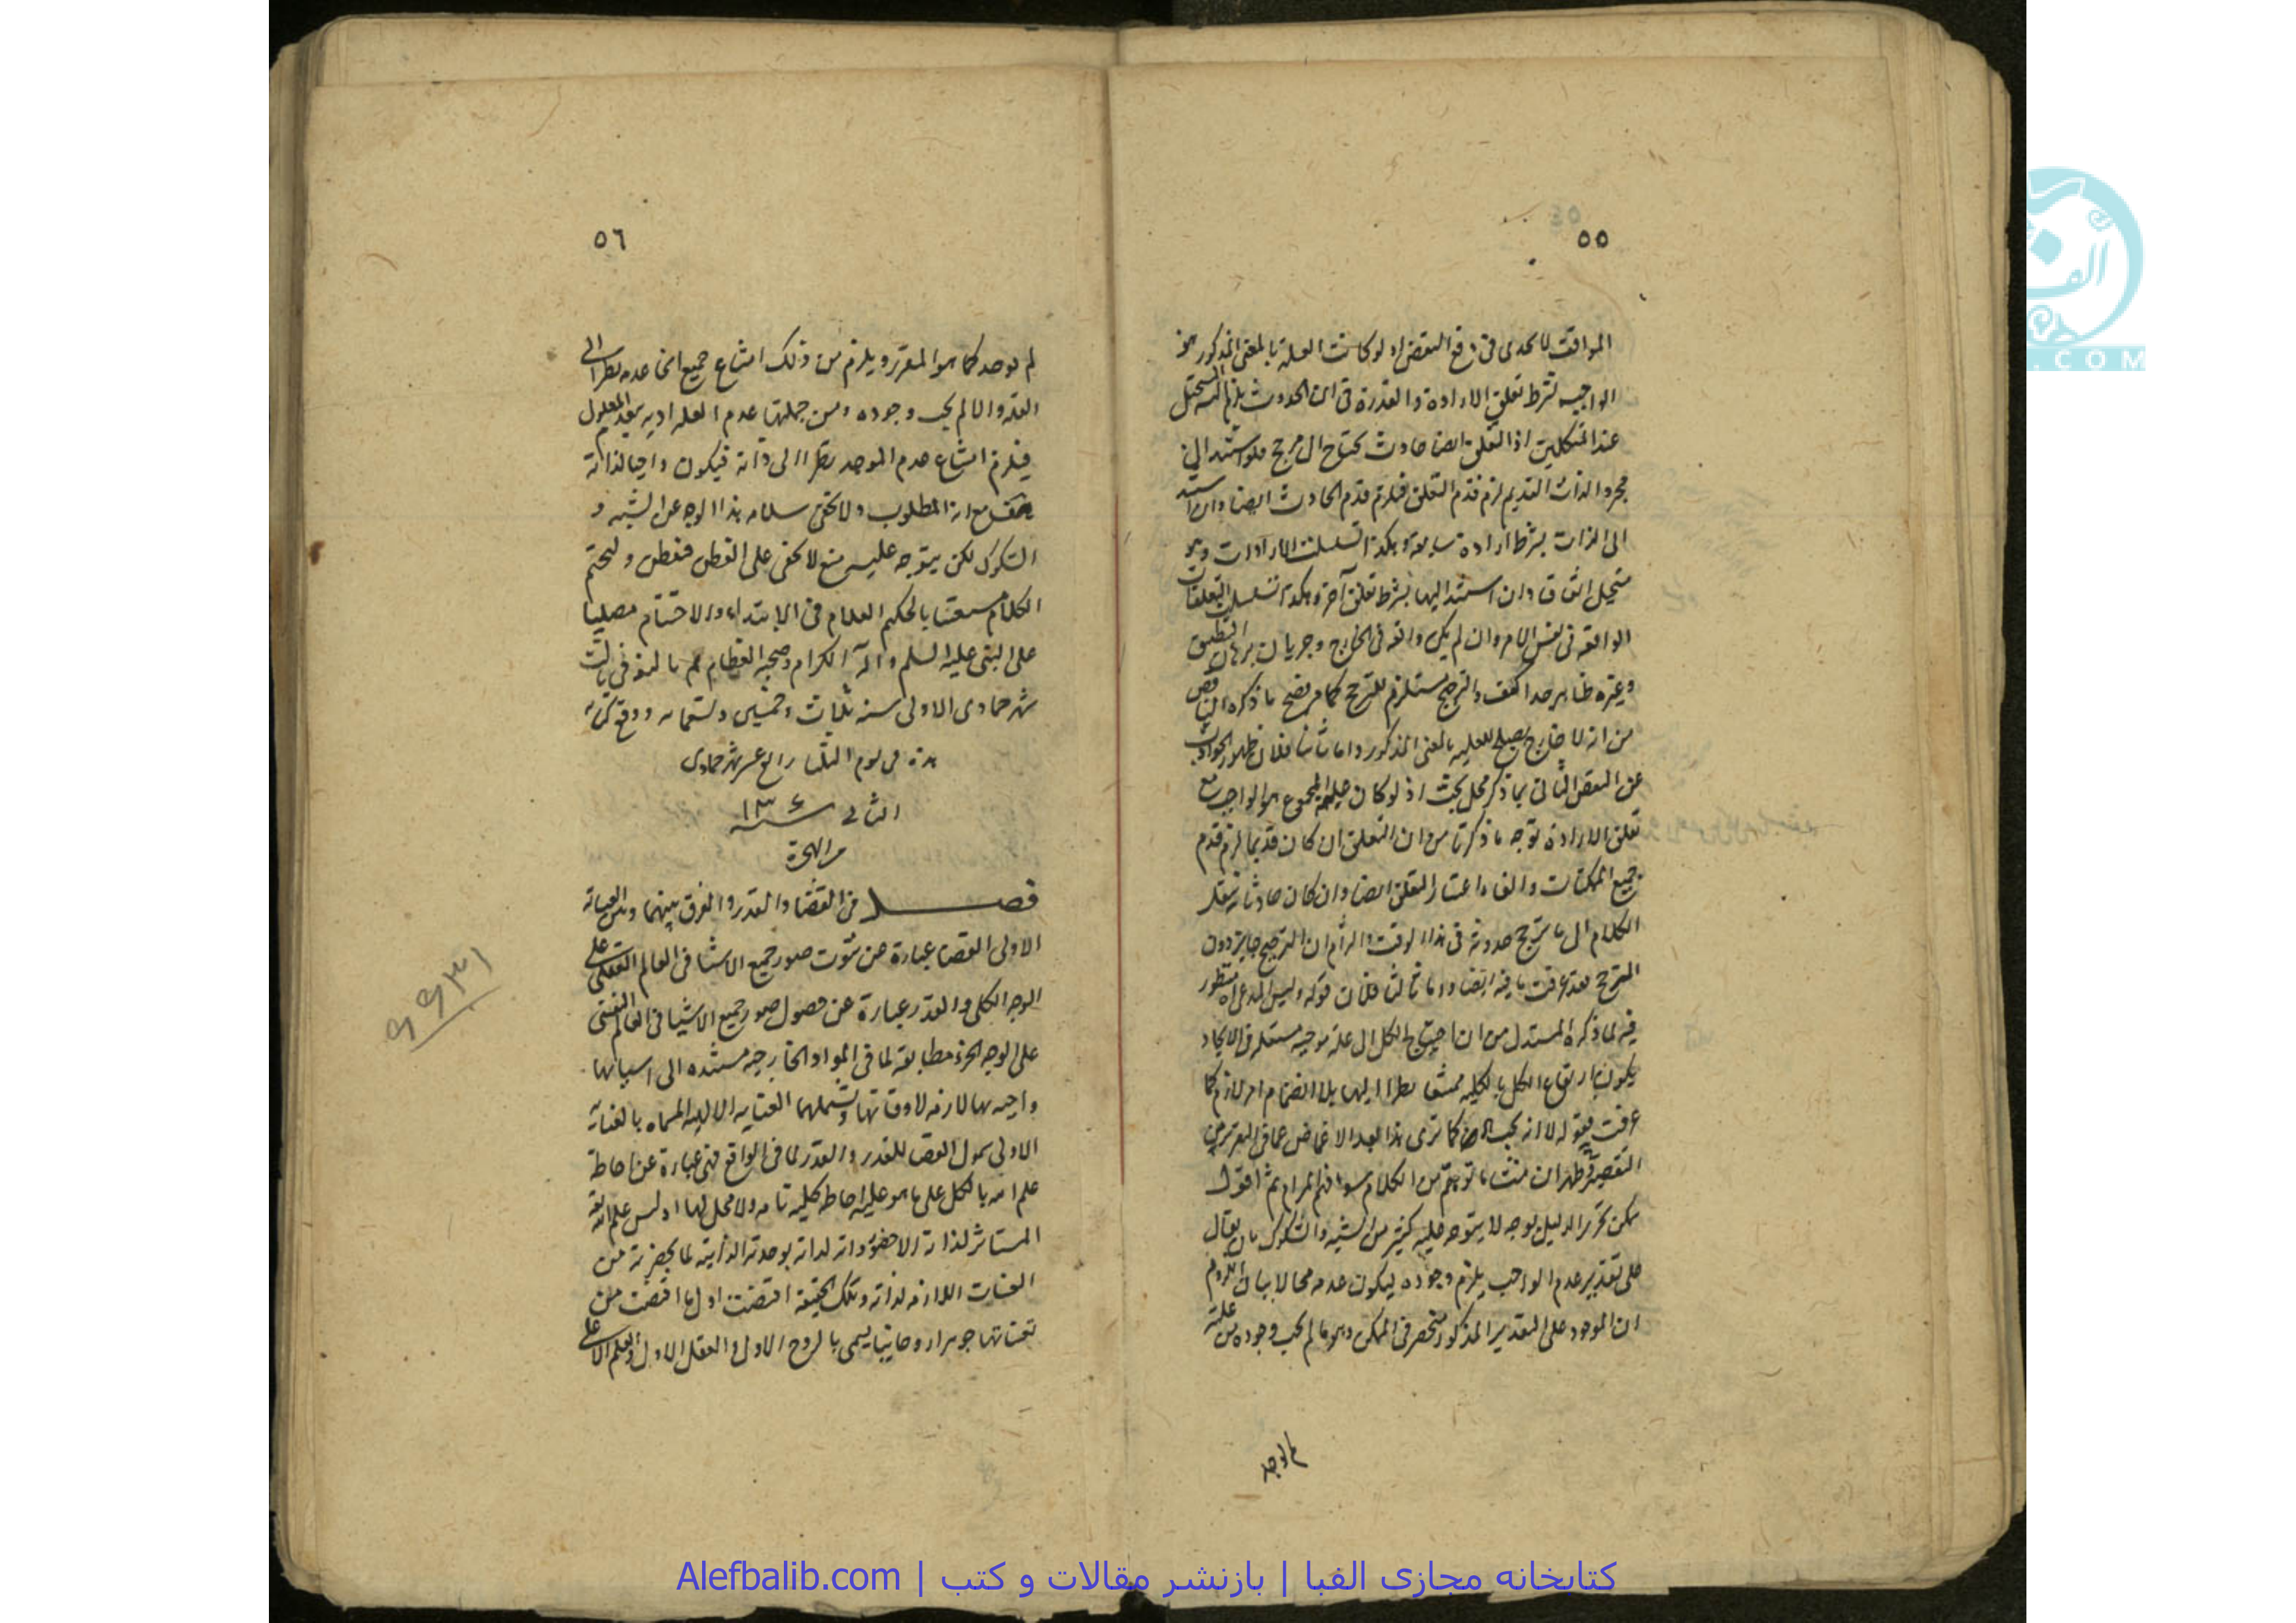 ٥٥
المواقف لا يجدى فى دفع النقض اذ لو كانت العلة بالمعنى المذكور هو
الواجب بشرط تعلق الارادة والقدرة فى ان الحدوث يلزم المستحيل
عند المتكلمين اذ التعلق ايضا حادث يحتاج الى مرجح فلو استند الى
مجرد الذات القديم لزم قدم التعلق فيلزم قدم الحادث ايضا وان استند
الى الذات بشرط ارادة سابقة وهكذا تسلسلت الارادات وهو
مستحيل اتفاقا وان استند اليها بشرط تعلق آخر وهكذا تسلسلت التعلقات
الواقعة فى نفس الامر وان لم يكن واقعة فى الخارج وجريان برهان التطبيق
وغيره ظاهر جدا كيف والترجيح مستلزم للترجح كما مر فصح ما ذكره الناقض
من انه لا خارج يصلح للعلية بالمعنى المذكور واما ثانيا فلان ظهور الجواب
عن النقض الثانى بما ذكر محل بحث اذ لو كان علة المجموع هو الواجب مع
تعلق الارادة توجه ما ذكرنا من ان التعلق ان كان قديما لزم قدم
جميع الممكنات والغاء اعتبار التعلق ايضا وان كان حادثا ننقل
الكلام الى ما يرجح حدوثه فى هذا الوقت والزام ان الترجيح جايز دون
الترجح فقد عرفت ما فيه ايضا واما ثالثا فلان قوله وليس المدعى منظور
فيه لما ذكره المستدل من ان احتياج الكل الى علة موجبة مستقلة فى الايجاد
يكون ارتفاع الكل بالكلية ممتنعا نظرا اليها بلا انضمام امر لازم كما
عرفت فقوله لا انه يجب الخ كما ترى هذا بعد الاغماض عما فى التقرير من
التقصير فظهر ان منشأ ما توهم من الكلام سوء فهم المرام ثم اقول
يمكن تحرير الدليل بوجه لا يتوجه عليه كثير من الشبه والشكوك بان يقال
على تقدير عدم الواجب يلزم وجوده ليكون عدمه محالا بيان اللزوم
ان الموجود على التقدير المذكور منحصر فى الممكن وهو ما لم يجب وجوده من علته
لم يوجد
٥٦
لم يوجد كما هو المقرر ويلزم من ذلك امتناع جميع انحاء عدمه نظرا الى
العلة والا لم يجب وجوده ومن جملتها عدم العلة اذ به ينعدم المعلول
فيلزم امتناع عدم الموجد نظرا الى ذاته فيكون واجبا لذاته
مع انه المطلوب ولا يخفى سلامة هذا الوجه عن الشبه و
الشكوك لكن يتوجه عليه منع لا يخفى على الفطن فتفطن ولنختم
الكلام مستعينا بالحكيم العلام فى الابتداء والاختتام مصليا
على النبى عليه السلم وآله الكرام وصحبه العظام ثم بالخير فى ثالث
شهر جمادى الاولى سنة ثلاث وخمسين وتسعمائه ووقع كتابه
هذه فى يوم الثلثا رابع عشر شهر جمادى
الثانى سنه ١٣٠٤
من الهجرة
فصل فى القضا والقدر والفرق بينهما وبين العناية
الاولى القضا عبارة عن ثبوت صور جميع الاشيا فى العالم العقلى على
الوجه الكلى والقدر عبارة عن حصول صور جميع الاشيا فى العالم النفسى
على الوجه الجزئى مطابقة لما فى المواد الخارجية مستنده الى اسبابها
واجبه بها لازمه لاوقاتها وتشملهما العنايه الالهيه المسماه بالعناية
الاولى شمول القضا للقدر والقدر لما فى الواقع فهى عبارة عن احاطة
علم الله بالكل على ما هو عليه احاطه كليه تامه ولا محل لها اذ ليس علم الله
لذاته الا حضور ذاته لذاته بوحدته الذاتية لما يحضرنه من
اللازمه لذاته وتلك الحقيقة اقتضت اول ما اقتضت من
تعيناتها جوهرا روحانيا يسمى بالروح الاول والعقل الاول والقلم الاعلى
٩٩٣١
کتابخانه مجازی الفبا | بازنشر مقالات و کتب | Alefbalib.com
الفبا
.COM